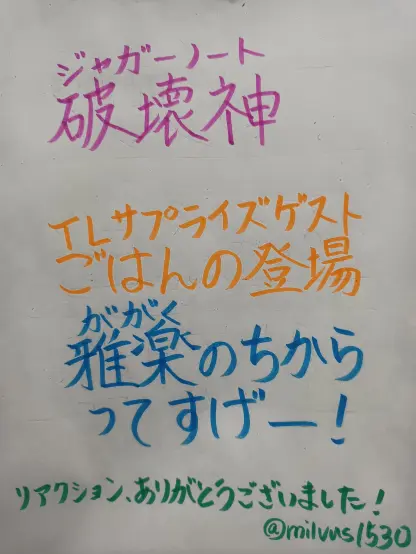 ジャガーノート
破壊神
TLサプライズゲスト
ごはんの登場
ががく
雅楽のちから
ってすげー!
リアクション、ありがとうございました!
@milvus1530